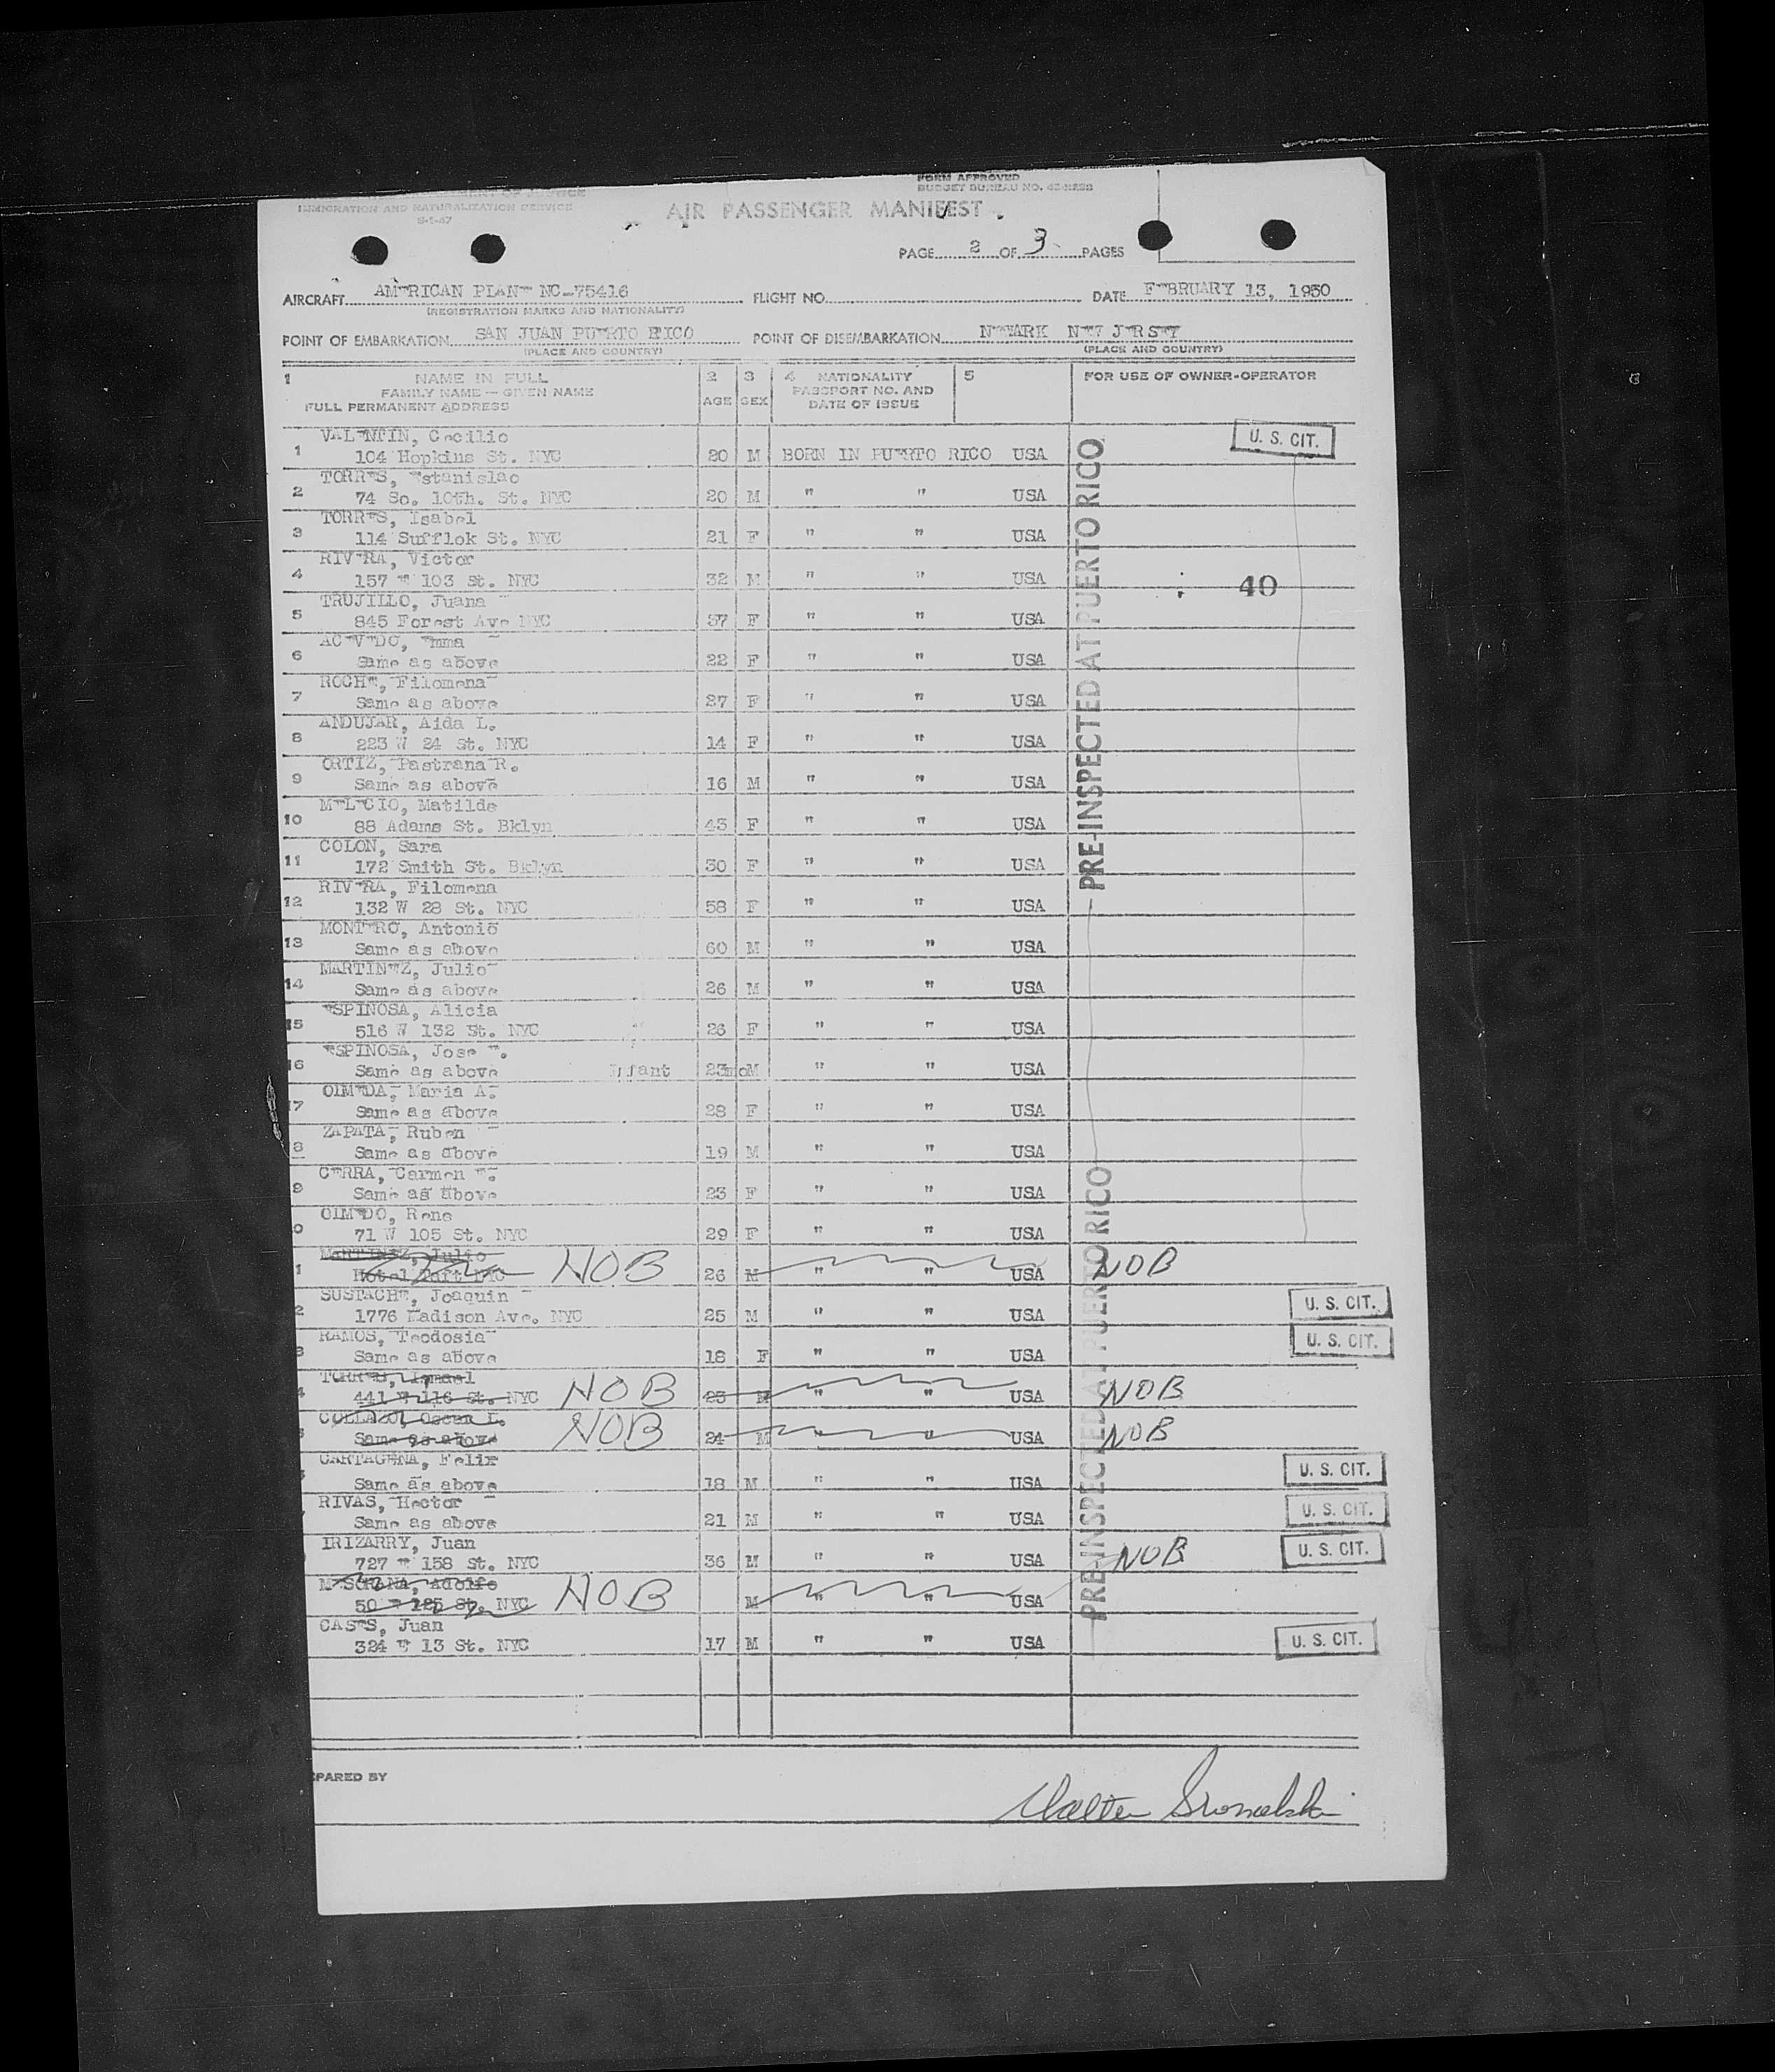 IMMIGRATION AND NATURALIZATION SERVICE
FORM APPROVED
BUDGET BUREAU NO.
AIR PASSENGER MANIFEST
PAGE 2 OF 3 PAGES
AIRCRAFT AMERICAN PLANE NC-75416 FLIGHT NO. DATE FEBRUARY 13, 1950
(REGISTRATION MARKS AND NATIONALITY)
POINT OF EMBARKATION SAN JUAN PUERTO RICO POINT OF DISEMBARKATION NEWARK NEW JERSEY
(PLACE AND COUNTRY) (PLACE AND COUNTRY)
1 NAME IN FULL 2 3 4 NATIONALITY 5 FOR USE OF OWNER-OPERATOR
FAMILY NAME — GIVEN NAME AGE SEX PASSPORT NO. AND
FULL PERMANENT ADDRESS DATE OF ISSUE
VALENTIN, Cecilio U. S. CIT.
1 104 Hopkins St. NYC 20 M BORN IN PUERTO RICO USA
TORRES, Estanislao
2 74 So. 10th. St. NYC 20 M " " USA
TORRES, Isabel
3 114 Sufflok St. NYC 21 F " " USA
RIVERA, Victor
4 157 E 103 St. NYC 32 M " " USA 40
TRUJILLO, Juana
5 845 Forest Ave NYC 57 F " " USA
ACEVEDO, Emma
6 Same as above 22 F " " USA
ROCHE, Filomena
7 Same as above 27 F " " USA
ANDUJAR, Aida L.
8 223 W 24 St. NYC 14 F " " USA
ORTIZ, Pastrana R.
9 Same as above 16 M " " USA
MELECIO, Matilde
10 88 Adams St. Bklyn 43 F " " USA
COLON, Sara
11 172 Smith St. Bklyn 30 F " " USA
RIVERA, Filomena
12 132 W 28 St. NYC 58 F " " USA
MONTERO, Antonio
13 Same as above 60 M " " USA
MARTINEZ, Julio
14 Same as above 26 M " " USA
ESPINOSA, Alicia
15 516 W 132 St. NYC 26 F " " USA
ESPINOSA, Jose E.
16 Same as above Infant 23mo M " " USA
OLMEDA, Maria A.
7 Same as above 28 F " " USA
ZAPATA, Ruben
8 Same as above 19 M " " USA
CERRA, Carmen E.
9 Same as above 23 F " " USA
OLMEDO, Rene
0 71 W 105 St. NYC 29 F " " USA
MARTINEZ, Julio
1 Hotel Taft NYC NOB 26 M " " USA NOB
SUSTACHE, Joaquin
2 1776 Madison Ave. NYC 25 M " " USA U. S. CIT.
RAMOS, Teodosia
3 Same as above 18 F " " USA U. S. CIT.
TORRES, Ismael
4 441 E 116 St. NYC NOB 25 M " " USA NOB
COLLAZO, Oscar L.
Same as above NOB 24 M " " USA NOB
CARTAGENA, Felix
Same as above 18 M " " USA U. S. CIT.
RIVAS, Hector
Same as above 21 M " " USA U. S. CIT.
IRIZARRY, Juan
727 E 158 St. NYC 36 M " " USA NOB U. S. CIT.
Adolfo
50 E 125 St. NYC NOB M " " USA
CASES, Juan
324 E 13 St. NYC 17 M " " USA U. S. CIT.
PRE-INSPECTED AT PUERTO RICO
PRE-INSPECTED AT PUERTO RICO
PARED BY
Walter